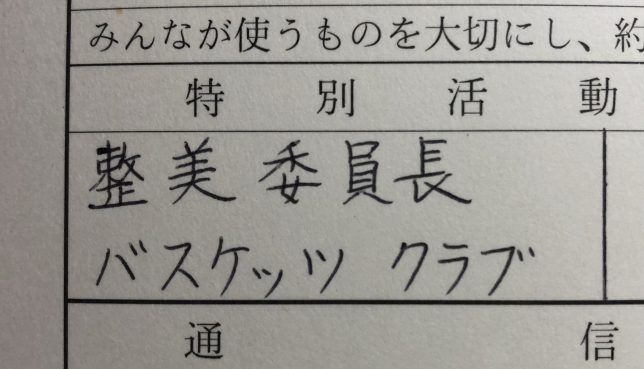 みんなが使うものを大切にし、約
特別活動
整美委員長
バスケッツ クラブ
通信